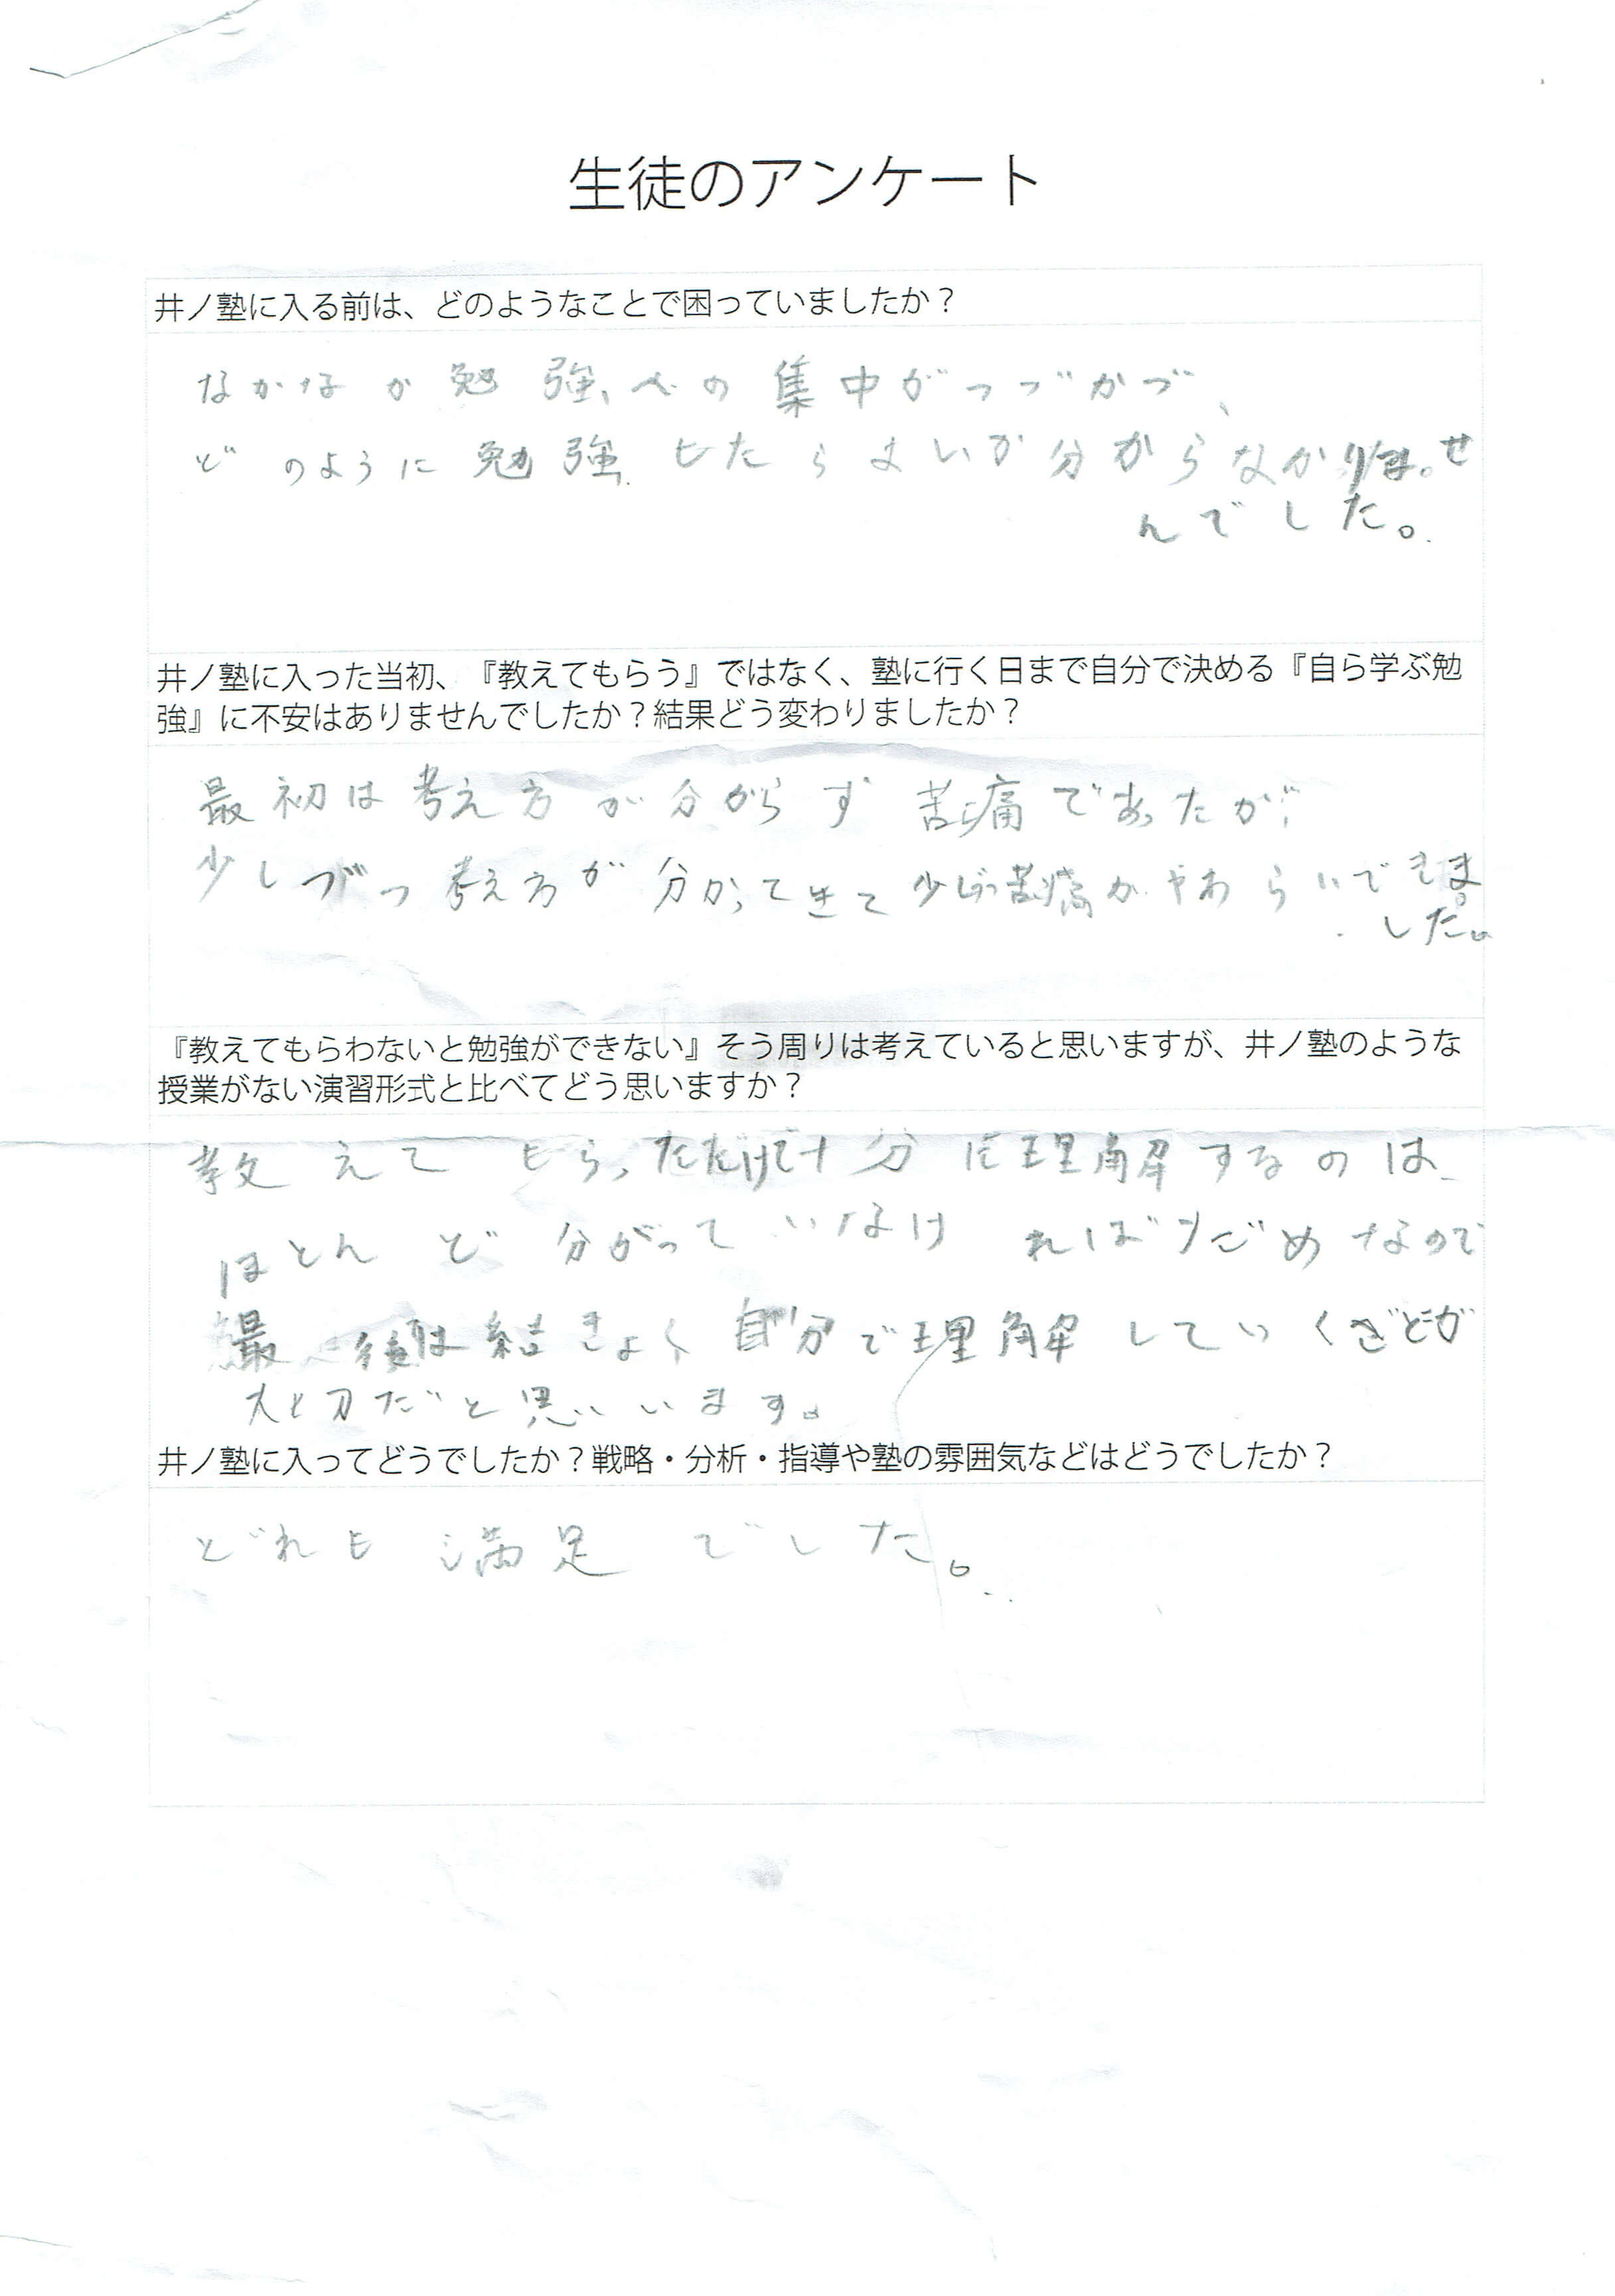 生徒のアンケート
井ノ塾に入る前は、どのようなことで困っていましたか？
なかなか勉強への集中がつづかづ、
どのように勉強したらよいか分からなかりませ
んでした。
井ノ塾に入った当初、『教えてもらう』ではなく、塾に行く日まで自分で決める『自ら学ぶ勉
強』に不安はありませんでしたか？結果どう変わりましたか？
最初は考え方が分からず苦痛であったが、
少しづつ考え方が分かってきて少しづつ苦痛がやわらいできま
した。
『教えてもらわないと勉強ができない』そう周りは考えていると思いますが、井ノ塾のような
授業がない演習形式と比べてどう思いますか？
教えてもらっただけで十分に理解するなのは
ほとんど分がっていなければだめなので
最後は結きょく自分で理解していくことが
大切だと思いいます。
井ノ塾に入ってどうでしたか？戦略・分析・指導や塾の雰囲気などはどうでしたか？
どれも満足でした。